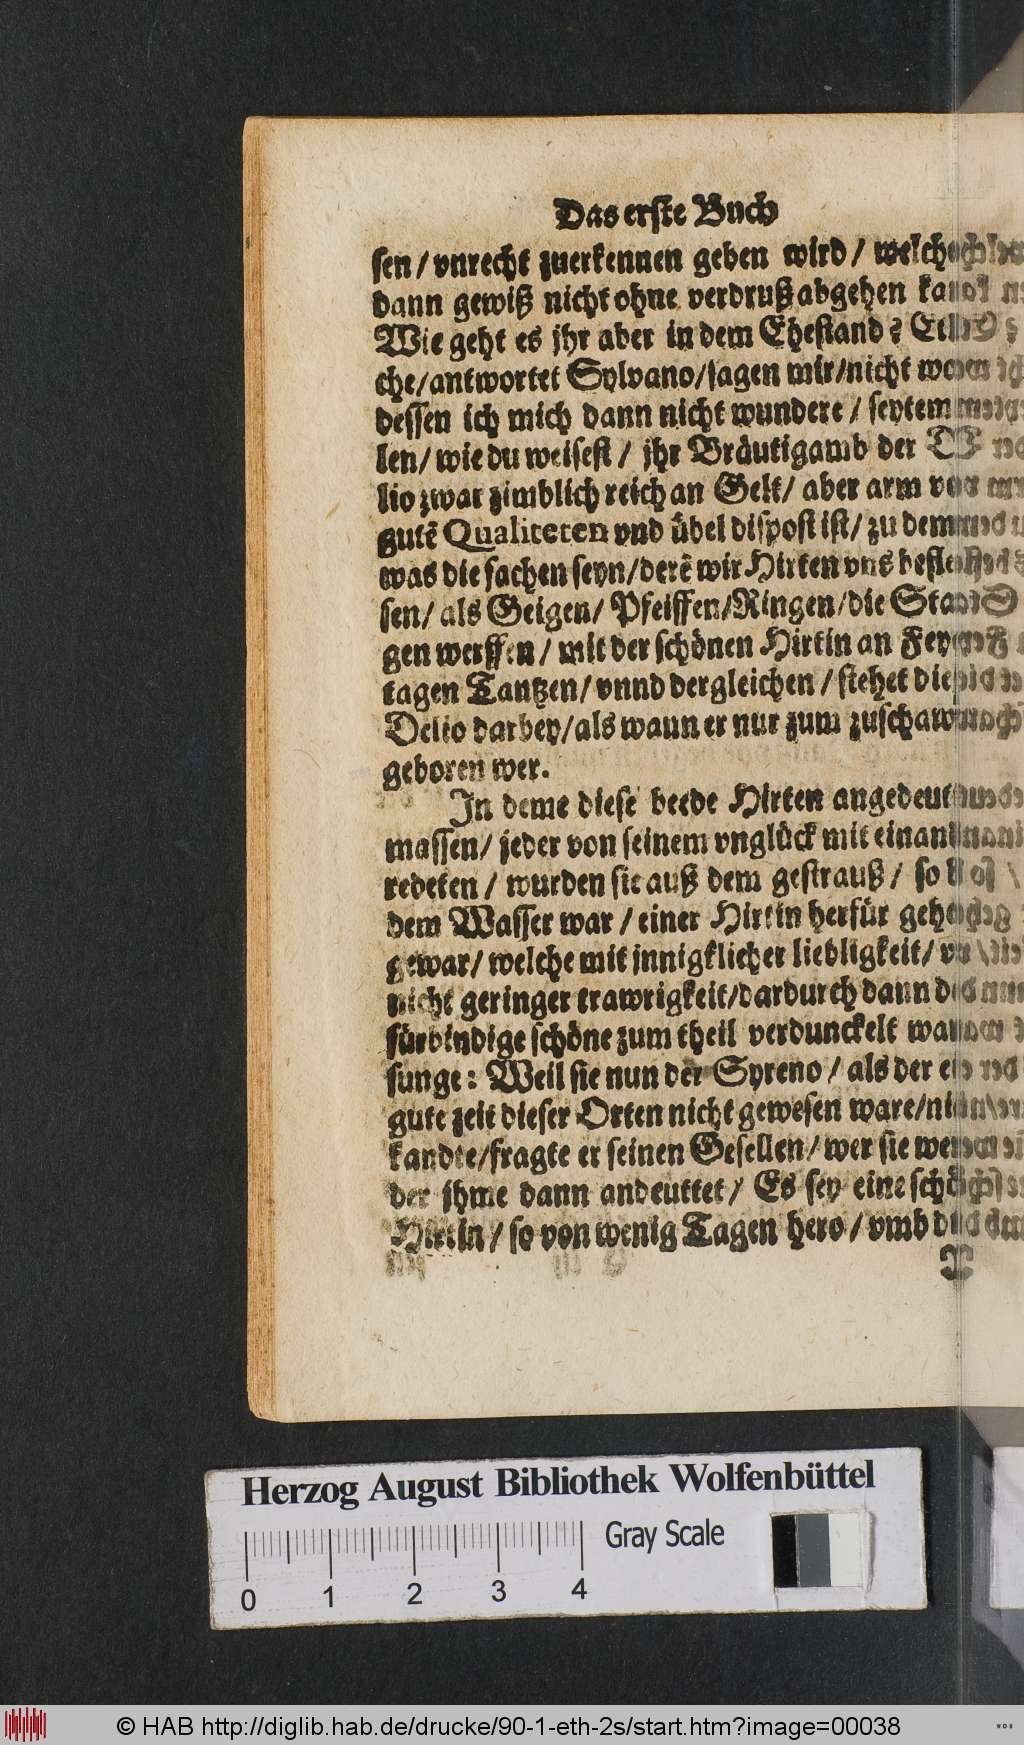 Das erste Buch
sen / vnrecht zuerkennen geben wird / welch
dann gewiß nicht ohne verdruß abgehen kan
Wie geht es jhr aber in dem Ehestand? Etl
che / antwortet Sylvano / sagen mir / nicht wo
dessen ich mich dann nicht wundere / seytem
len / wie du weisest / jhr Bräutigamb der
lio zwar zimblich reich an Gelt / aber arm von
gutẽ Qualiteten vnd übel dispost ist / zu dem
was die sachen seyn / derẽ wir Hirten vns befle
sen / als Geigen / Pfeiffen / Ringen / die Stan
gen werffen / mit der schönen Hirtin an Fey
tagen Tantzen / vnnd dergleichen / stehet die
Delio darbey / als wann er nur zum zuschaw
geboren wer.
In deme diese beede Hirten angedeut
massen / jeder von seinem vnglück mit einan
redeten / wurden sie auß dem gestrauß / so
dem Wasser war / einer Hirtin herfür gehe
gewar / welche mit jnnigklicher liebligkeit / vn
nicht geringer trawrigkeit / dardurch dann
fürbindige schöne zum theil verdunckelt wa
sunge: Weil sie nun der Syreno / als der ei
gute zeit dieser Orten nicht gewesen ware / ni
kandte / fragte er seinen Gesellen / wer sie wer
der jhme dann andeuttet / Es sey eine schö
Hirtin / so von wenig Tagen hero / vmb d
Herzog August Bibliothek Wolfenbüttel
Gray Scale
0 1 2 3 4
© HAB http://diglib.hab.de/drucke/90-1-eth-2s/start.htm?image=00038